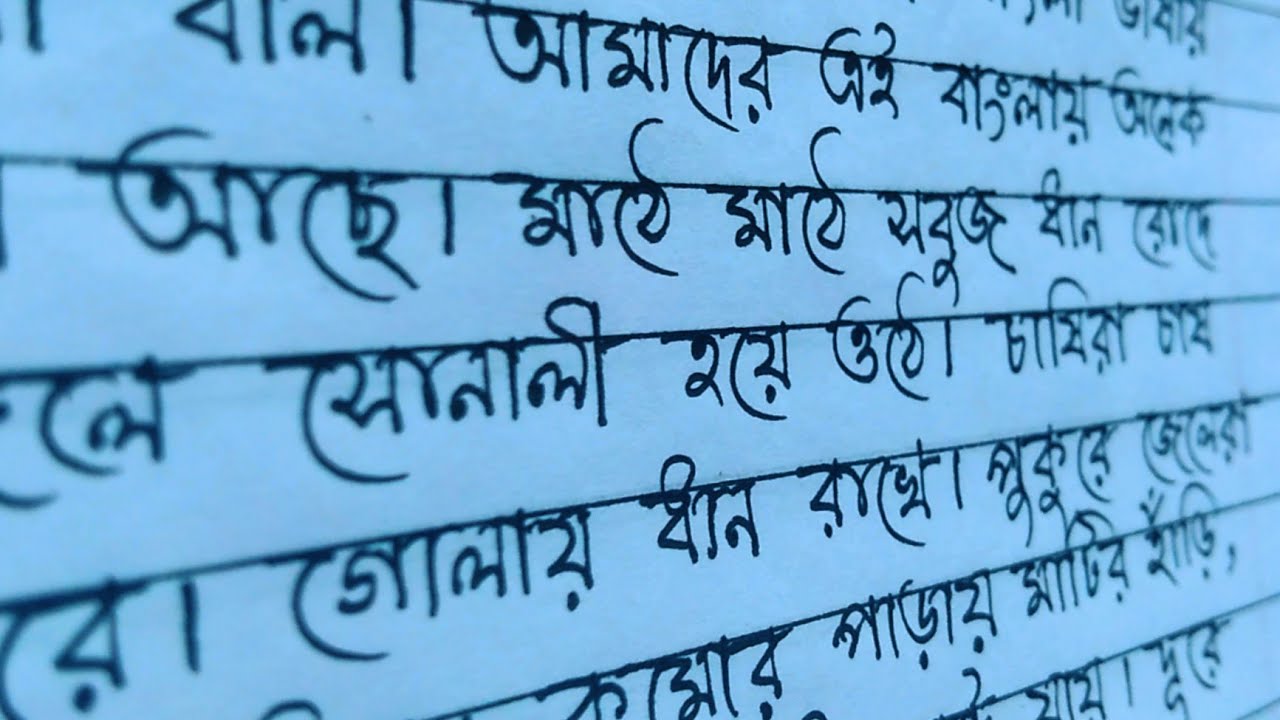 বাংলা ভাষায়
বলি। আমাদের এই বাংলায় অনেক
আছে। মাঠে মাঠে সবুজ ধান রোদে
সোনালী হয়ে ওঠে। চাষিরা চাষ
রে। গোলায় ধান রাখে। পুকুরে জেলেরা
কামার পাড়ায় মাটির হাঁড়ি,
যায়। দূরে